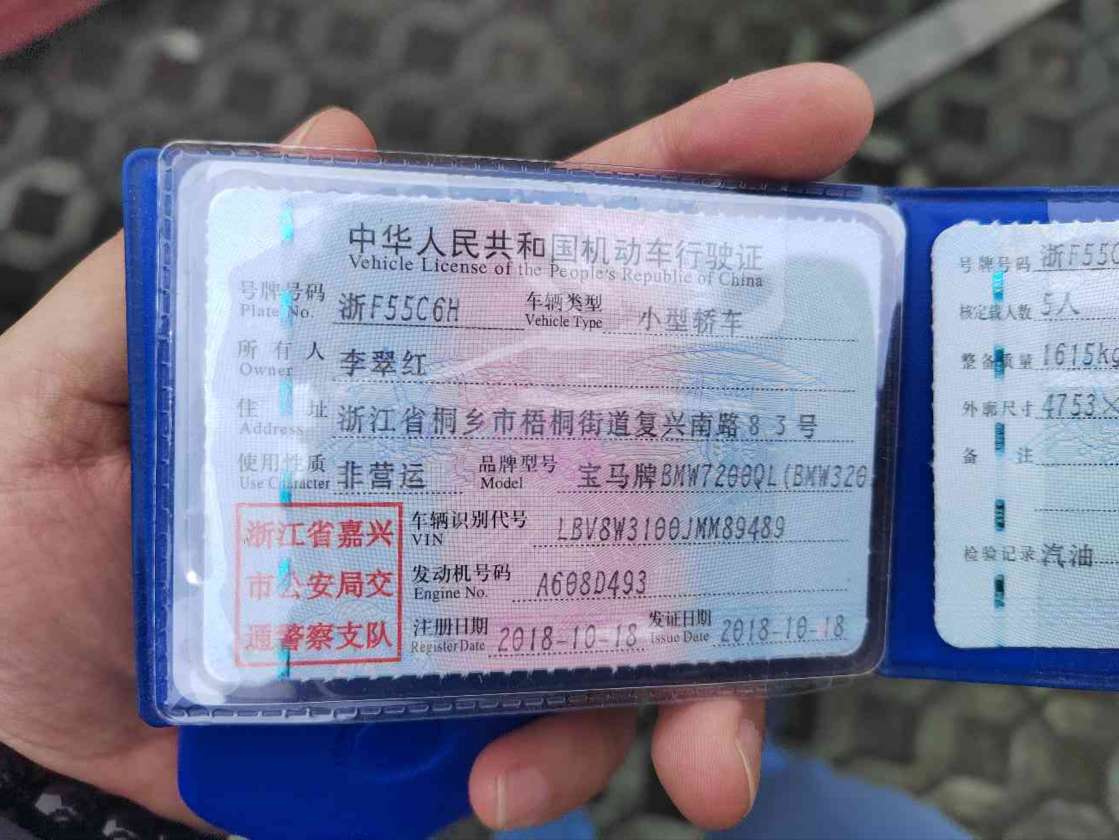 中华人民共和国机动车行驶证
Vehicle License of the People's Republic of China
号牌号码 浙F55C6H 车辆类型 小型轿车
Plate No. Vehicle Type
所有人 李翠红
Owner
住址 浙江省桐乡市梧桐街道复兴南路83号
Address
使用性质 非营运 品牌型号 宝马牌BMW7200QL(BMW320
Use Character Model
浙江省嘉兴
市公安局交
通警察支队
车辆识别代号 LBV8W3100JMM89489
VIN
发动机号码 A608D493
Engine No.
注册日期 2018-10-18 发证日期 2018-10-18
Register Date Issue Date
号牌号码 浙F55C
核定载人数 5人
整备质量 1615kg
外廓尺寸 4753×
备注
检验记录 汽油